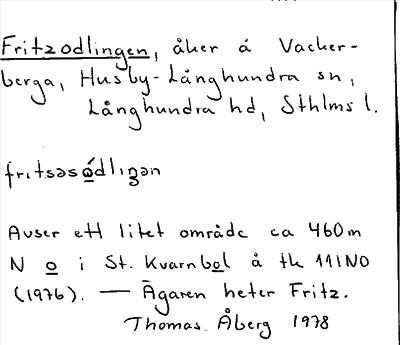 Fritzodlingen, åker å Vacker-
berga, Husby-Långhundra sn,
Långhundra hd, Sthlms l.
fritsəsó̲dlıŋən
Avser ett litet område ca 460 m
N o i St. Kvarnbol å tk 111NO
(1976). — Ägaren heter Fritz.
Thomas Åberg 1978